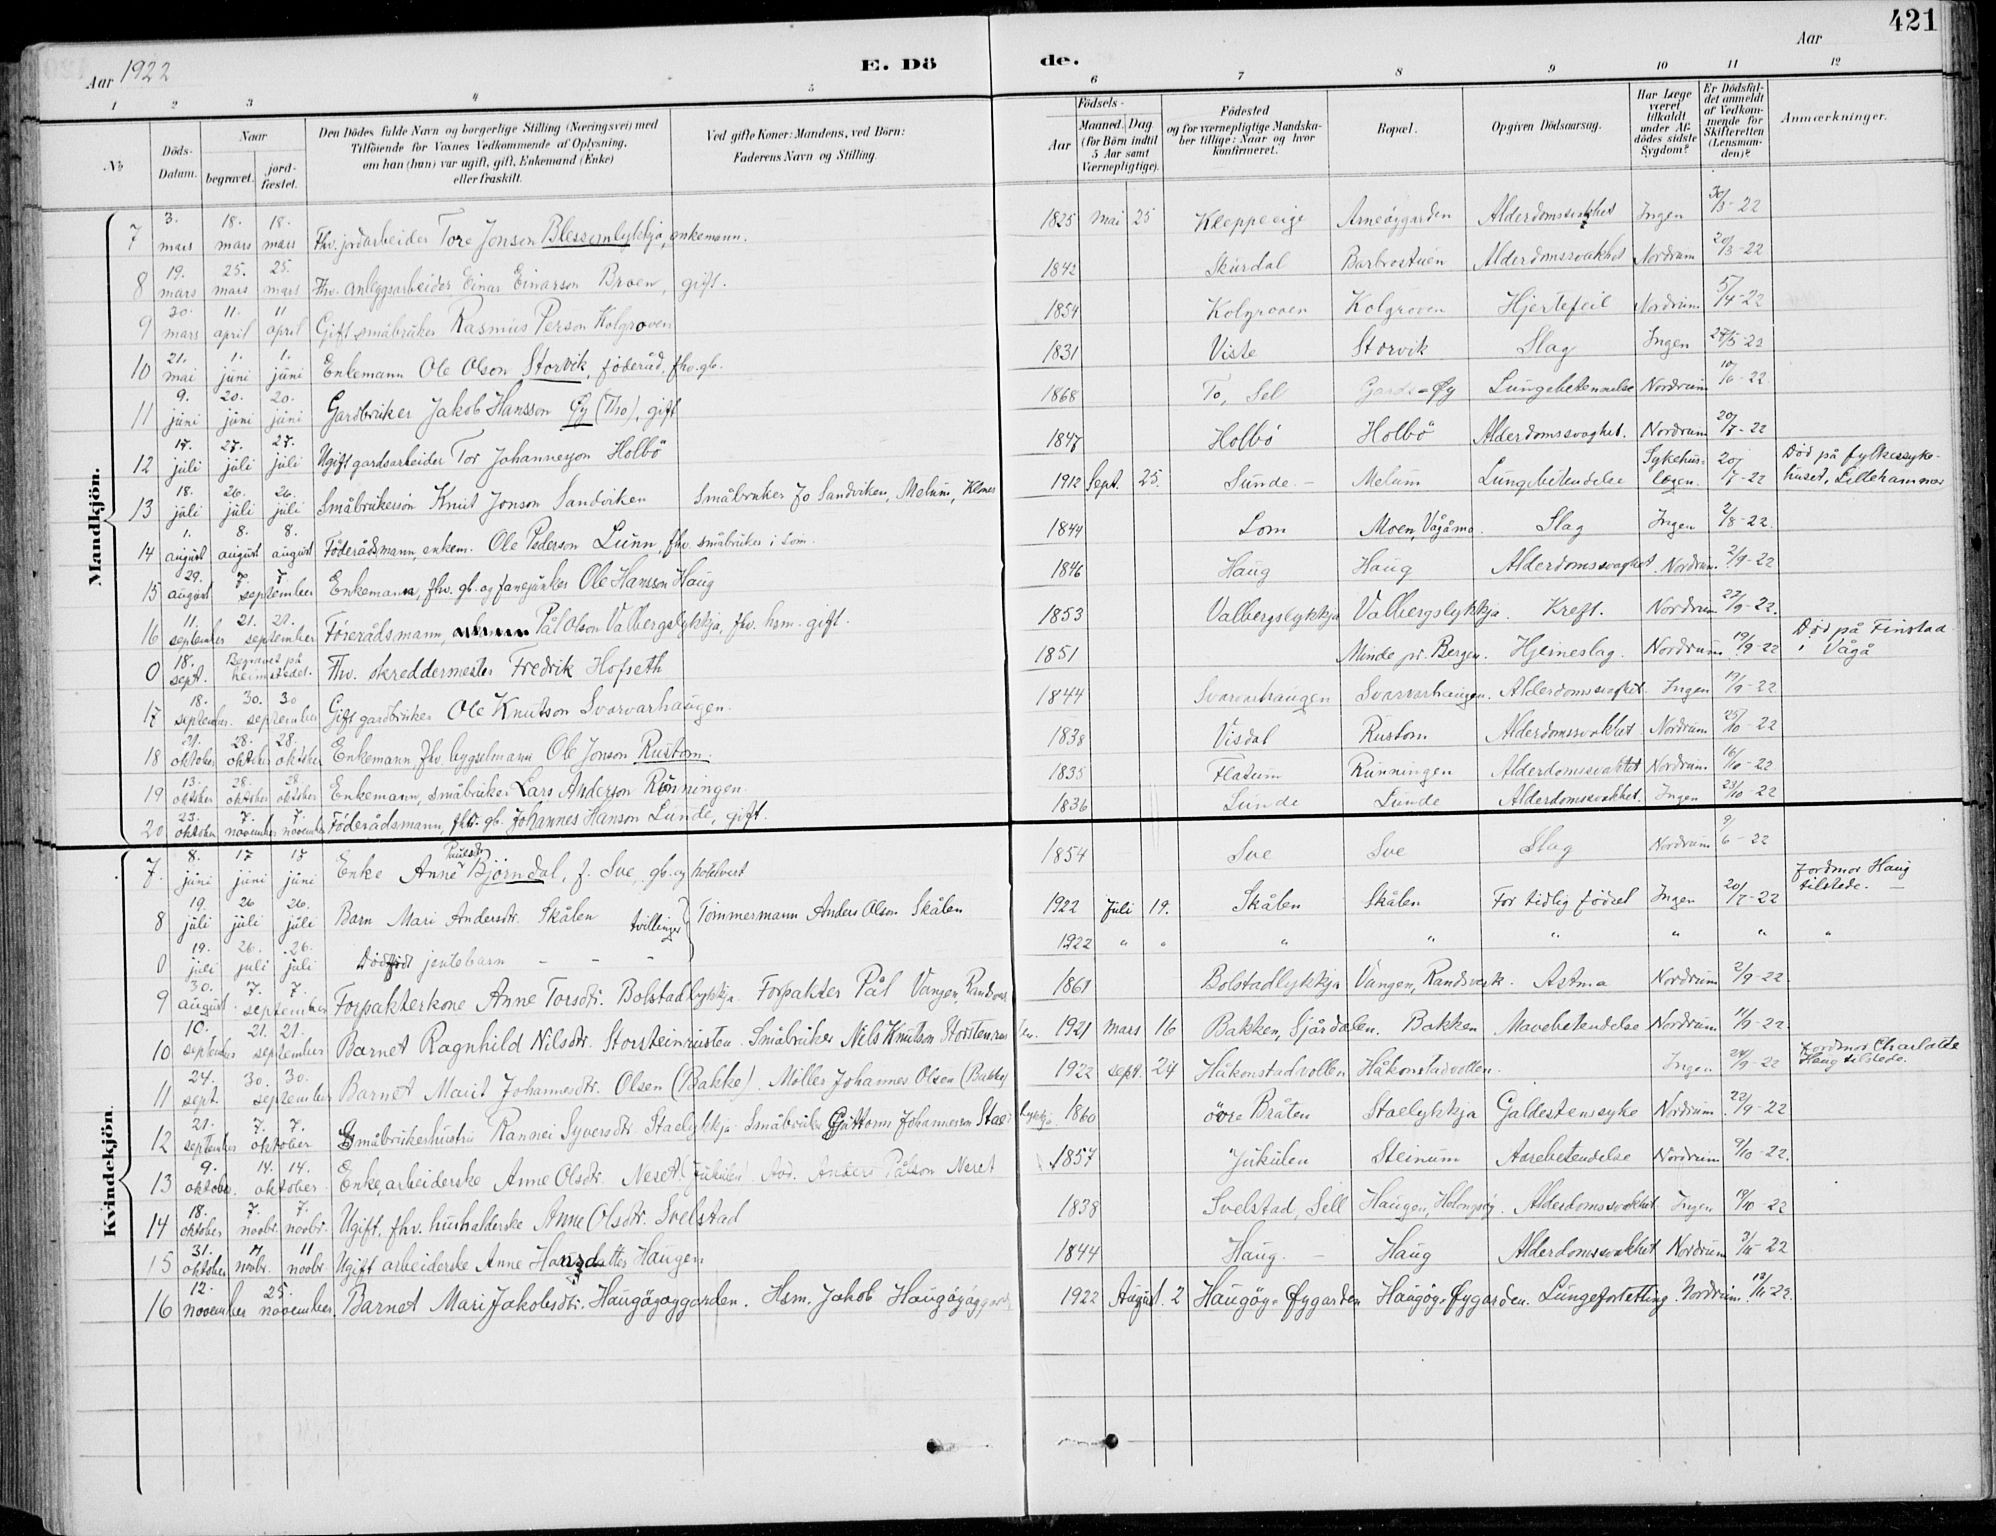 421
Aar 1922
E. Dö
de.
Aar
1 2 3 4 5 6 7 8 9 10 11 12
No
Döds-Datum.
Naar
begravet.
jord-fæstet.
Den Dödes fulde Navn og borgerlige Stilling (Næringsvei) med
Tilföiende for Voxnes Vedkommende af Oplysning,
om han (hun) var ugift, gift, Enkemand (Enke)
eller fraskilt.
Ved gifte Koner: Mandens, ved Börn:
Faderens Navn og Stilling.
Födsels-
Aar
Maaned. Dag.
(for Börn indtil
5 Aar samt
Værnepligtige).
Födested
og for værnepligtige Mandska-
ber tillige: Naar og hvor
konfirmeret.
Bopæl.
Opgiven Dödsaarsag.
Har Læge
været
tilkaldt
under Af-
dödes sidste
Sygdom?
Er Dödsfal-
det anmeldt
af Vedkom-
mende for
Skifteretten
(Lensman-
den)?
Anmærkninger.
Mandkjön.
7 3. mars 18. mars 18. mars Fhv. jordarbeider Tore Jonsen Blessomlykkja, enkemann. 1825 Mai 25 Kleppeeige Arneöygarden Alderdomssvakhet Ingen 30/3-22
8 19. mars 25. mars 25. mars Fhv. anleggsarbeider Einar Einarson Broen, gift. 1842 Skurdal Barbrostuen Alderdomssvakhet Nordrum 20/3-22
9 30. mars 11. april 11 april Gift småbruker Rasmus Person Kolgroven 1854 Kolgroven Kolgroven Hjertefeil Nordrum 5/4-22
10 21. mai 1. juni 1. juni Enkemann Ole Olson Storvik, föderåd, fhv. gb. 1831 Viste Storvik Slag Ingen 24/5-22
11 9. juni 20. juni 20. juni Gardbruker Jakob Hansson Øy (Tho), gift 1868 To, Sel Gards-Øy Lungebetennelse Nordrum 10/6-22
12 17. juli 27. juli 27. juli Ugift gardsarbeider Tor Johanneson Holbö 1847 Holbö Holbö Alderdomssvaghet. Nordrum 20/7-22
13 18. juli 26. juli 26. juli Småbrukersön Knut Jonson Sandviken Småbruker Jo Sandviken, Melum, Klones 1912 Sept. 25. Sunde.- Melum Lungbetendelse Sykehus-legen. 20/7-22 Död på fylkessyke-huset, Lillehammer
14 1. august 8. august 8. august Föderådsmann, enkem. Ole Pederson Lunn, fhv. småbruker i Lom. 1844 Lom Moen, Vågåmo. Slag Ingen 2/8-22.
15 29. august 7. 7. september Enkemann, fhv. gb. og fanejunker Ole Hansson Haug 1846 Haug Haug Alderdomssvaghet. Nordrum. 2/9-22
16 11. september 21. 21. september Förerådsmann, Pål Olson Valbergslykkja, fhv. hsm. gift. 1853 Valbergslykkja Valbergslykkja. Kreft. Nordrum 22/9-22.
0 18. sept. Begravet på heimstedet. Fhv. skreddermester Fredrik Hofseth 1851 Minde pr. Bergen. Hjerneslag. Nordrum 19/9-22 Död på Finstad i Vågå
17 18. september 30. 30 september Gift gardbruker Ole Knutson Svarvarhaugen. 1844 Svarvarhaugen Svarvarhaugen. Alderdomssvaghet. Ingen 19/9-22
18 21. oktober 28. oktober 28. oktober Enkemann, fhv. bygselmann Ole Jonson Rustom. 1838 Visdal Rustom Alderdomssvakhet Nordrum 25/10-22
19 13. oktober 28. oktober 28. oktober Enkemann, småbruker Lars Anderson Rönningen. 1835 Flatum Rünningen Alderdomssvakhet Nordrum 16/10-22
20 23. oktober 7. november 7. november Föderådsmann, fhv. gb. Johannes Hanson Lunde, gift. 1836 Lunde Lunde Alderdomssvakhet. Ingen 23/10-22
Kvindekjön.
7. 8. juni 17 juni 17 juni Enke Anne Paulsdtr Björndal, f. Sve, gb. og hotelvert 1854 Sve Sve Slag Nordrum 9/6-22
8 19. juli 26 juli 26. juli Barn Mari Andersdtr. Skålen tvillinger Tömmermann Anders Olson Skålen 1922 Juli 19. Skålen Skålen For tidlig födsel Ingen 20/7-22 Jordmor Haug tilstede.
0 19. juli 26. juli 26. juli Dödfödt jentebarn - - - 1922 " " " " " " " "
9 30. august 7. 7. september Forpakterkone Anne Torsdtr. Bolstadlykkja. Forpakter Pål Vangen, Randsverk 1861 Bolstadlykkja Vangen, Randsverk. Astma Nordrum 2/9-22.
10 10. september 21. 21. september Barnet Ragnhild Nilsdtr. Storsteinrusten. Småbruker Nils Knutson Storstenrusten. 1921 Mars 16 Bakken, Sjårdalen. Bakken Mavebetendelse Nordrum 11/9-22.
11 24. sept. 30. 30. september Barnet Marit Johannesdtr. Olsen (Bakke). Möller Johannes Olsen (Bakke) 1922 sept. 24 Håkonstadvollen Håkonstadvollen. Ingen 24/9-22 Jordmor Charlotte Haug tilstede.
12 21. september 7. 7. oktober Småbrukerhustru Rannei Syversdtr. Staelykkja. Småbruker Guttorm Johanneson Staelykkja 1860 övre Bråten Staelykkja Galdestenssyke Nordrum 22/9-22
13 9. oktober. 14. 14. oktober Enke, arbeiderske Anne Olsdtr. Neset (Jukulen) Avd. Anders Pålson Neset 1857 Jukulen Steinum Aarebetendelse Nordrum 9/10-22.
14 18. oktober 7. novbr. 7. novbr. Ugift, fhv. husholderske Anne Olsdtr. Svelstad 1838 Svelstad, Sell Haugen, Holungsöy. Alderdomssvakhet. Ingen 19/10-22
15 31. oktober 11 novbr. 11 novbr Ugift arbeiderske Anne Hansdatter Haugen 1844 Haug. - Haug Alderdomssvakhet Nordrum 3/11-22
16 12. november 25. november. Barnet Mari Jakobsdtr. Haugöygarden. Hsm. Jakob Haugöygarden 1922 August 2 Haugöy-Øygarden Haugöy-Øygarden. Lungefortetting Nordrum. 13/11-22.